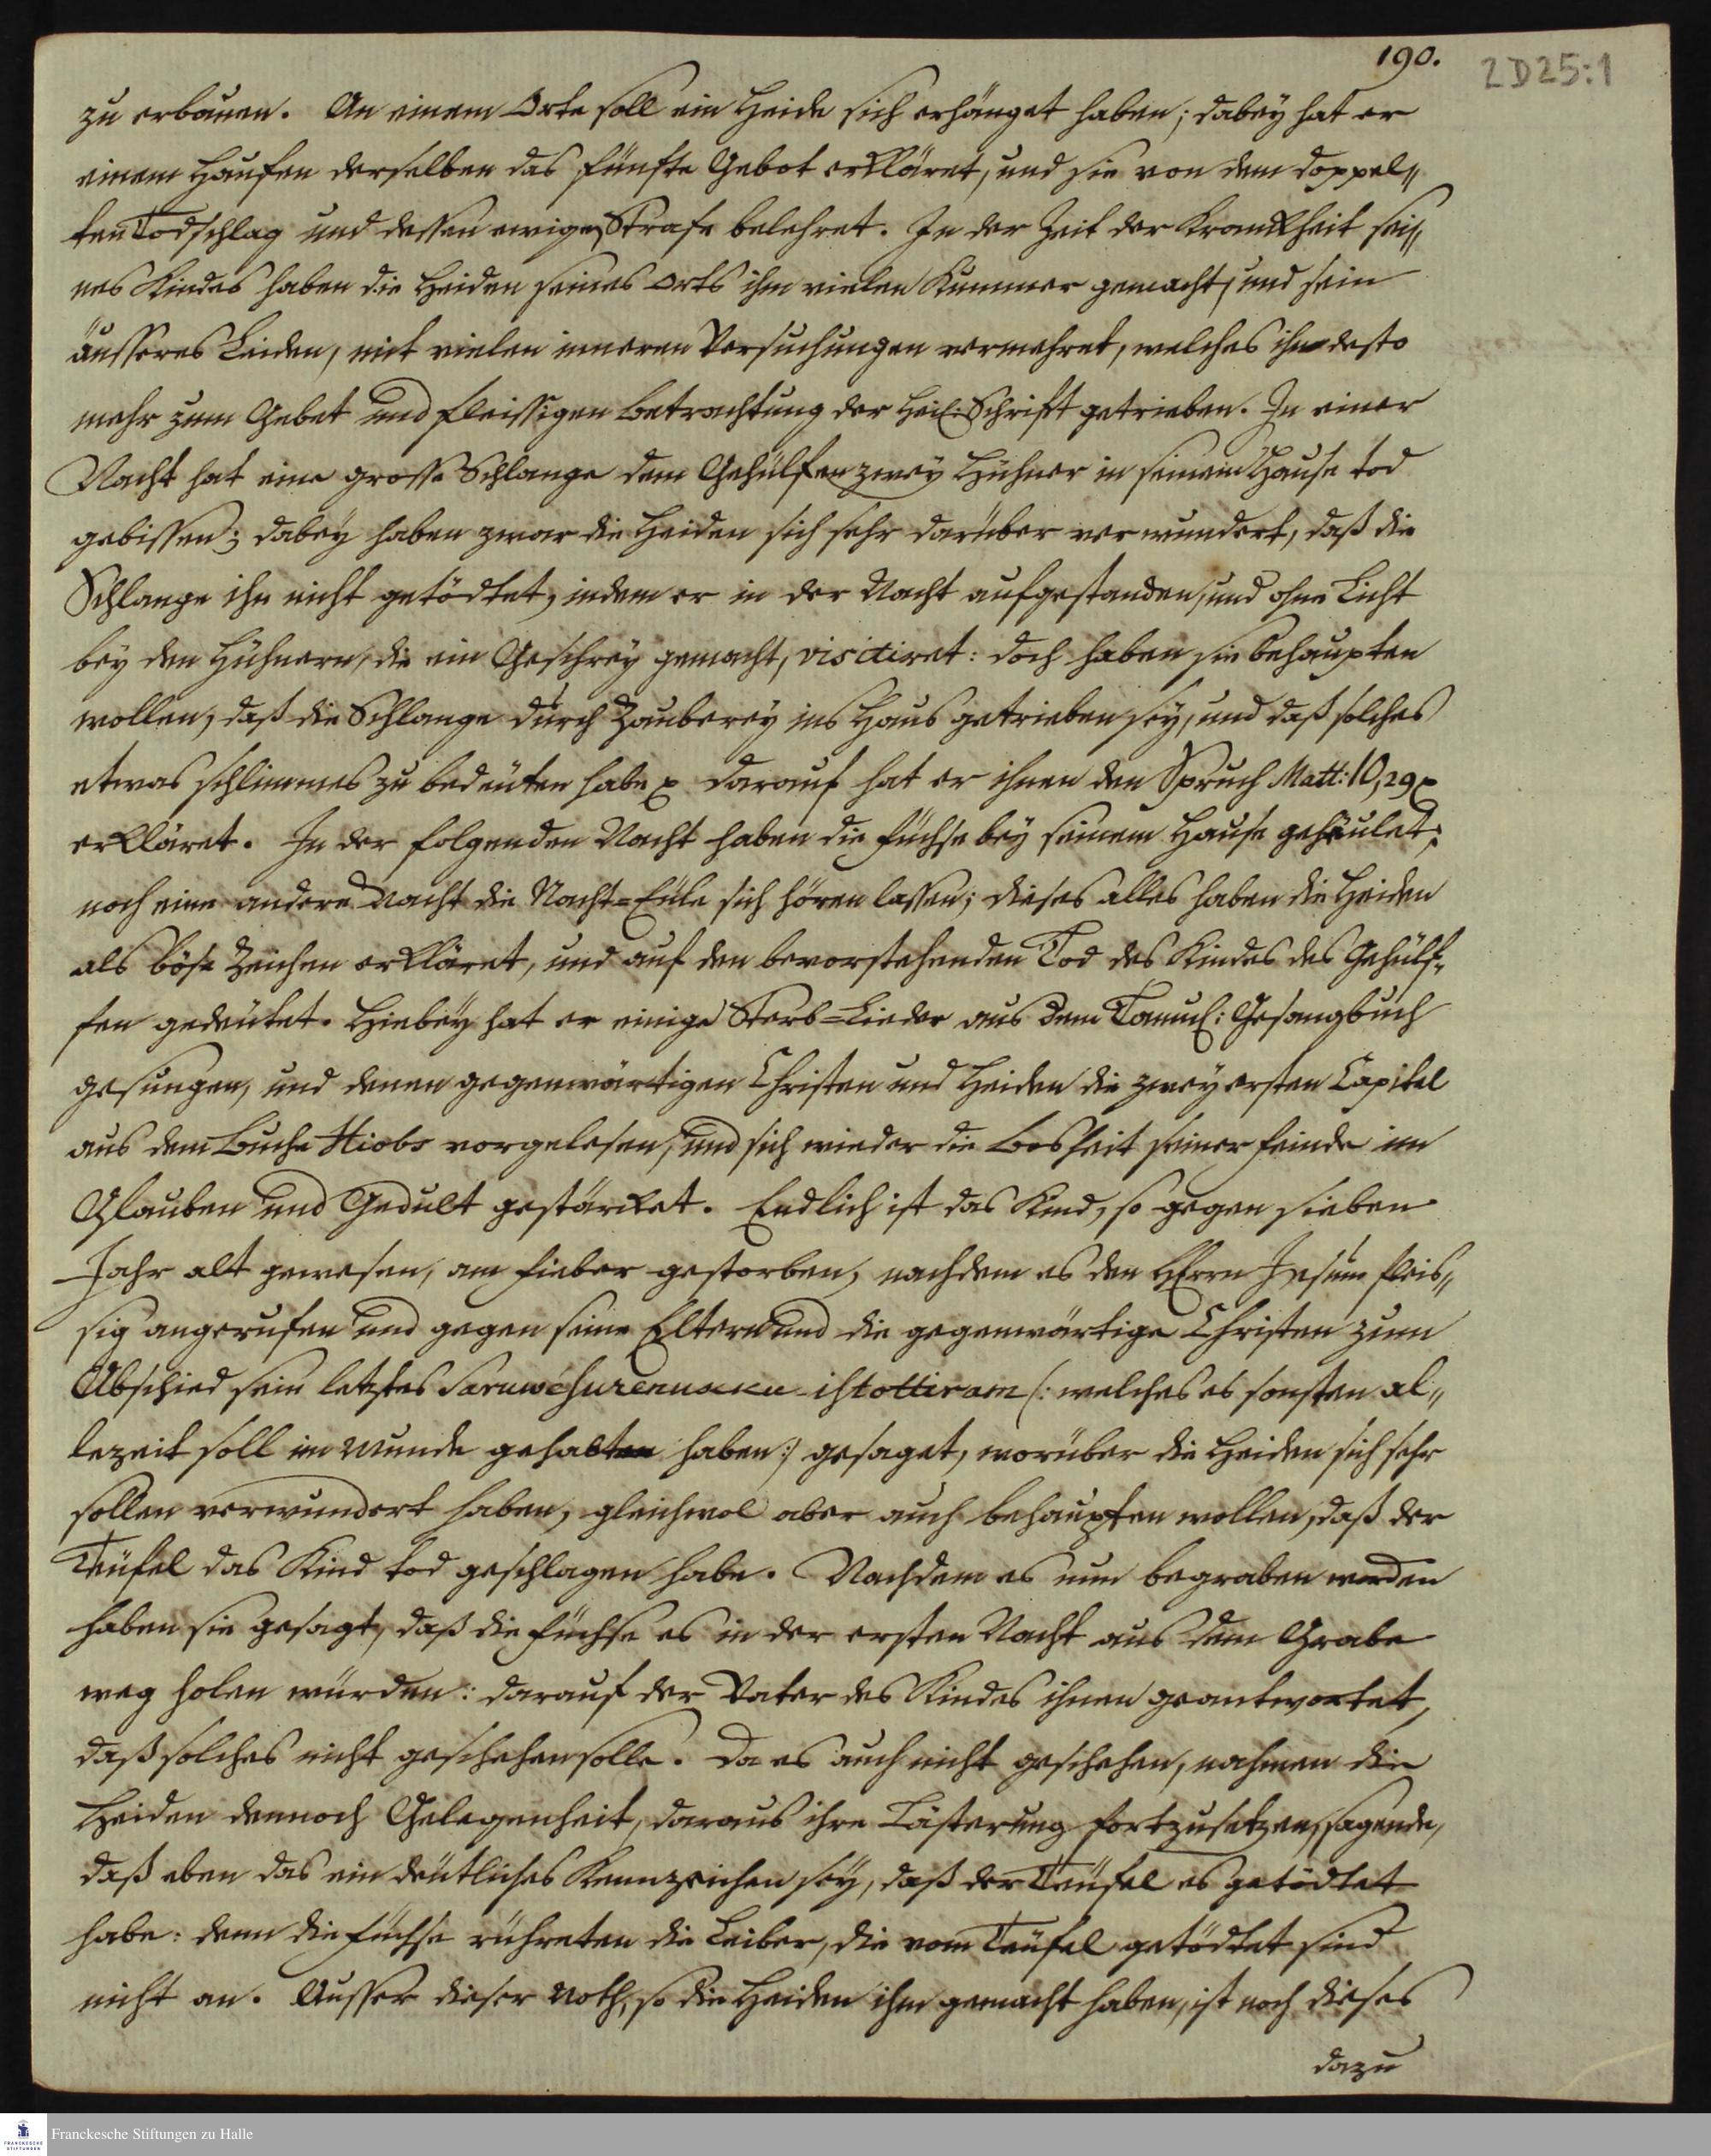 190.
2D25:1
zu erbauen. An einem Orte soll ein Heide sich erhänget haben; dabey hat er
einem Haufen derselben das fünfte Gebot erkläret, und sie von dem doppel„
ten Todschlag und dessen ewigen Strafe belehret. In der Zeit der Kranckheit sei„
nes Kindes haben die Heiden seines Orts ihm vielen Kummer gemacht, und sein
äusseres Leiden, mit vielen inneren Versuchungen vermehret, welches ihn desto
mehr zum Gebet und fleissigen Betrachtung der Heil: Schrift getrieben. In einer
Nacht hat eine grosse Schlange dem Gehülfen zwey Hühner in seinem Hause tod
gebissen; dabey haben zwar die Heiden sich sehr darüber verwundert, daß die
Schlange ihn nicht getödtet, indem er in der Nacht aufgestanden, und ohne Licht
bey den Hühnern, die ein Geschrey gemacht, visitiret: doch haben sie behaupten
wollen, daß die Schlange durch Zauberey ins Haus getrieben sey, und daß solches
etwas schlimmes zu bedeuten habe darauf hat er ihnen den Spruch Matt: 10, 29
erkläret. In der folgenden Nacht haben die Füchse bey seinem Hause gehäulet;
noch eine andere Nacht die Nacht=Eule sich hören lassen; dieses alles haben die Heiden
als böse Zeichen erkläret, und auf den bevorstehenden Tod des Kindes des Gehülf„
fen gedeutet. Hiebey hat er einige Sterb=Lieder aus dem Tamul: Gesangbuch
gesungen, und denen gegenwärtigen Christen und Heiden die zwey ersten Capitel
aus dem Buche Hiobs vorgelesen, und sich wieder die Bosheit seiner Feinde im
Glauben und Gedult gestärcket. Endlich ist das Kind, so gegen sieben
Jahr alt gewesen, am Fieber gestorben, nachdem es den HErrn Jesum fleis„
sig angerufen und gegen seine Eltern und die gegenwärtige Christen zum
Abschied sein letztes istottiram (: welches es sonsten al„
lezeit soll im Munde gehabt haben :) gesaget, worüber die Heiden sich sehr
sollen verwundert haben, gleichwol aber auch behaupten wollen, daß der
Teufel das Kind tod geschlagen habe. Nachdem es nun begraben worden
haben sie gesagt, daß die Füchse es in der ersten Nacht aus dem Grabe
weg holen würden: darauf der Vater des Kindes ihnen geantwortet,
daß solches nicht geschehen solle. Da es auch nicht geschehen, nahmen die
Heiden dennoch Gelegenheit, daraus ihre Lästerung fortzusetzen, sagende,
daß eben das ein deutliches Kennzeichen sey, daß der Teufel es getödtet
habe: denn die Füchse rühreten die Leiber, die vom Teufel getödtet sind
nicht an. Ausser dieser Noth, so die Heiden ihm gemacht haben, ist noch dieses
dazu
Franckesche Stiftungen zu Halle